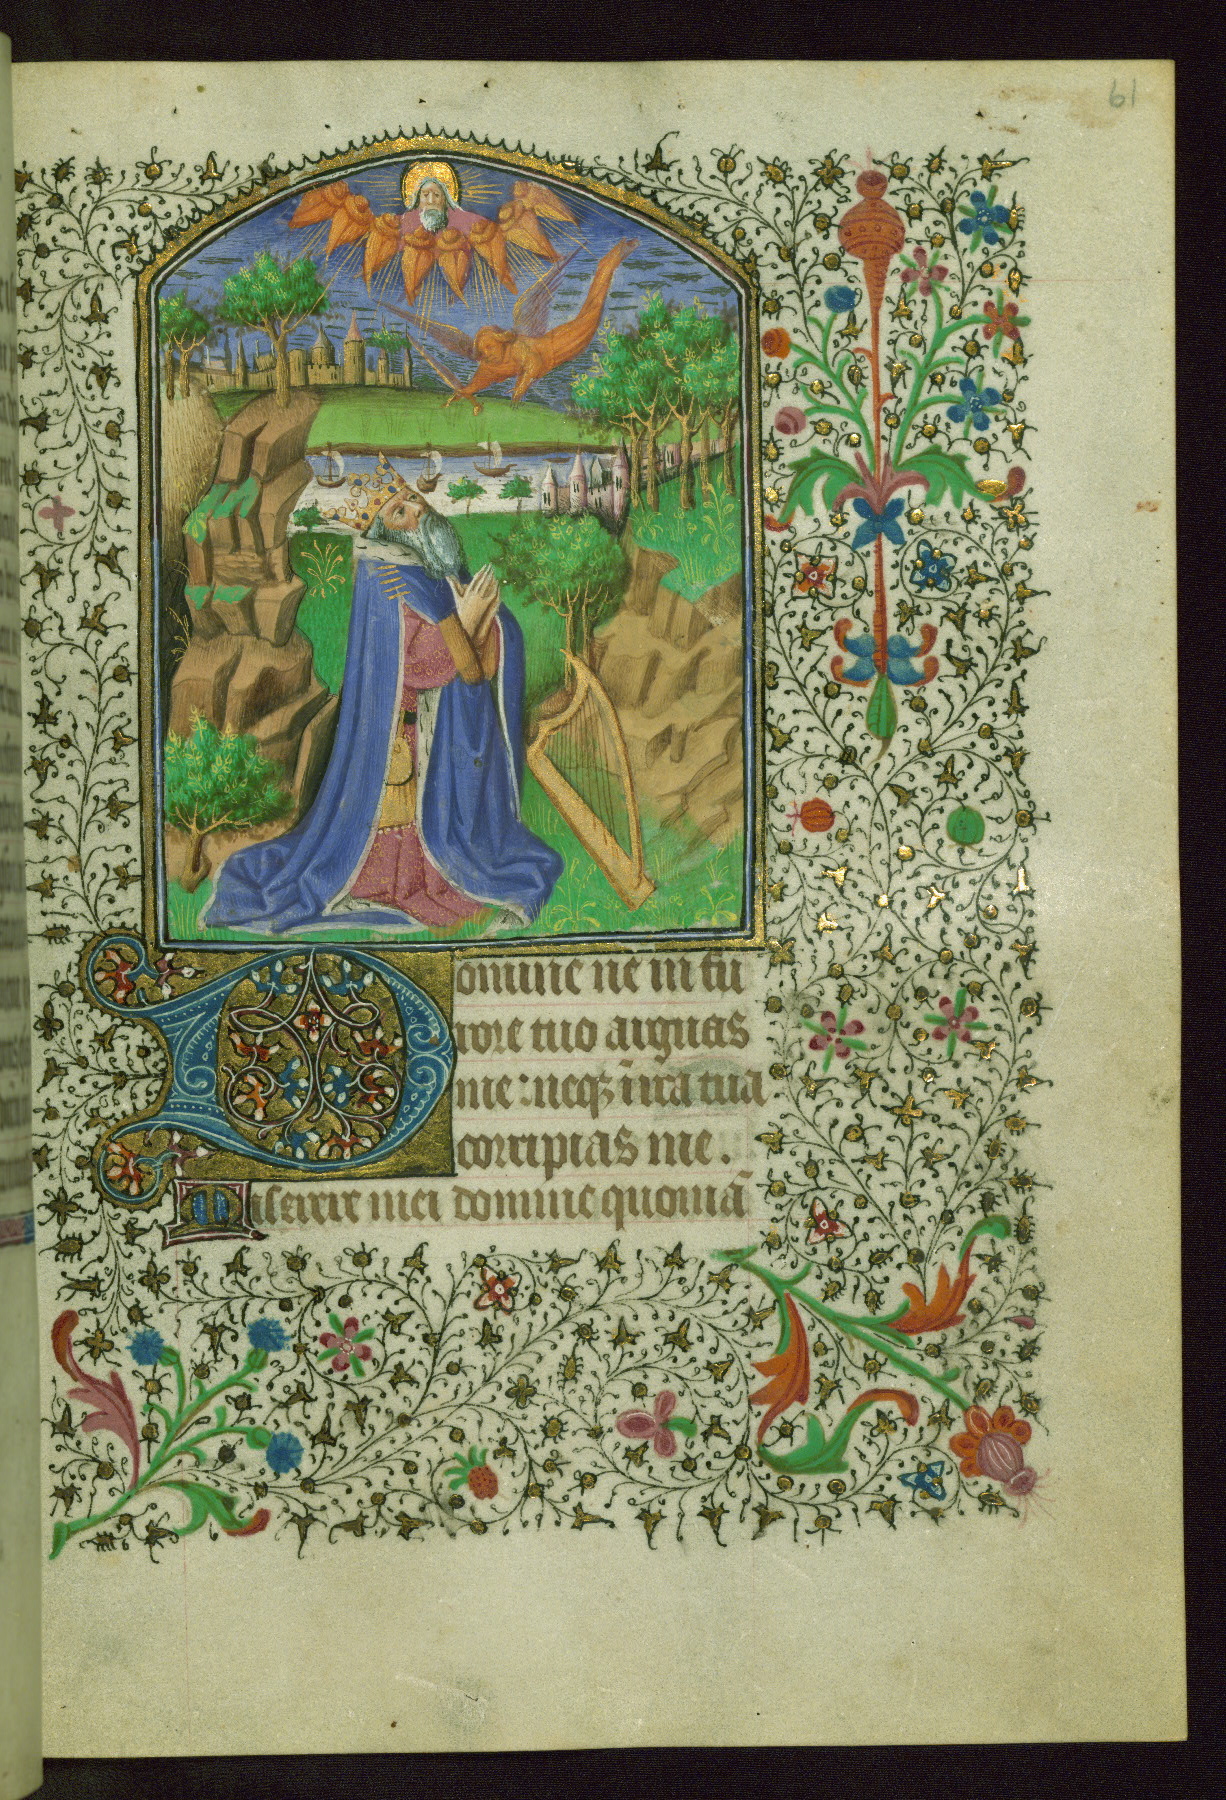 61
Domine ne in fu
rore tuo arguas
me : neq₃ ī ira tua
corripias me .
Miserere mei domine quoniā